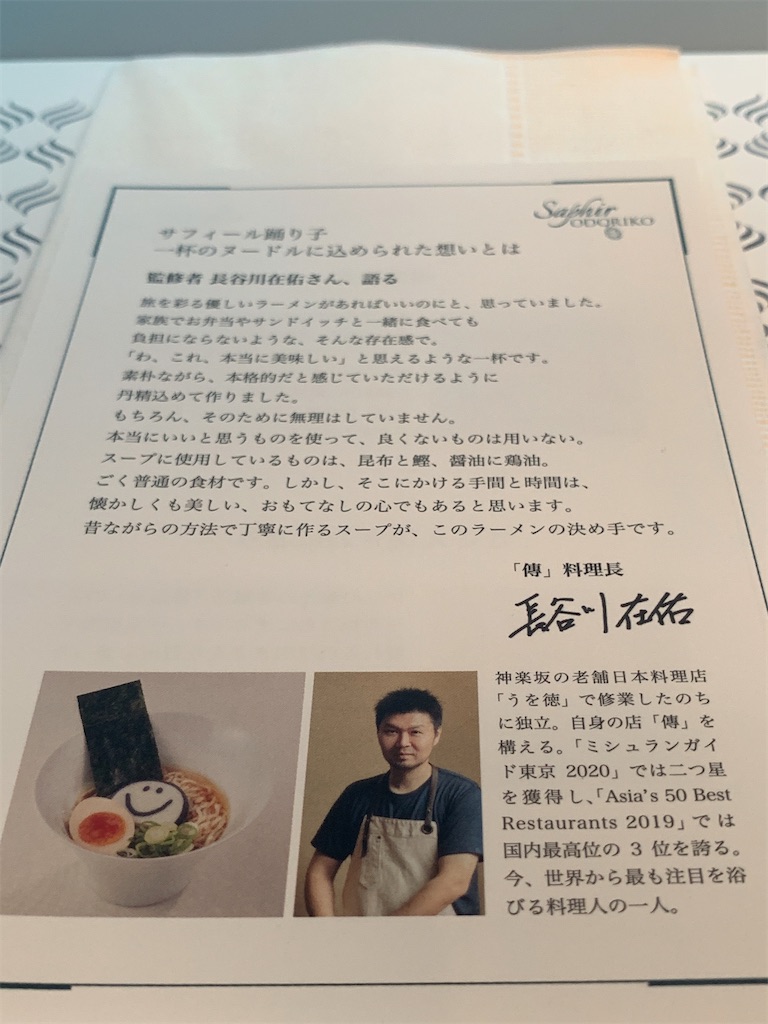 Saphir
ODORIKO
サフィール踊り子
一杯のヌードルに込められた想いとは
監修者 長谷川在佑さん、語る
旅を彩る優しいラーメンがあればいいのにと、思っていました。
家族でお弁当やサンドイッチと一緒に食べても
負担にならないような、そんな存在感で。
「わ、これ、本当に美味しい」と思えるような一杯です。
素朴ながら、本格的だと感じていただけるように
丹精込めて作りました。
もちろん、そのために無理はしていません。
本当にいいと思うものを使って、良くないものは用いない。
スープに使用しているものは、昆布と鰹、醤油に鶏油。
ごく普通の食材です。しかし、そこにかける手間と時間は、
懐かしくも美しい、おもてなしの心でもあると思います。
昔ながらの方法で丁寧に作るスープが、このラーメンの決め手です。
「傳」料理長
長谷川在佑
神楽坂の老舗日本料理店
「うを徳」で修業したのち
に独立。自身の店「傳」を
構える。「ミシュランガイ
ド東京 2020」では二つ星
を獲得し、「Asia's 50 Best
Restaurants 2019」では
国内最高位の 3 位を誇る。
今、世界から最も注目を浴
びる料理人の一人。